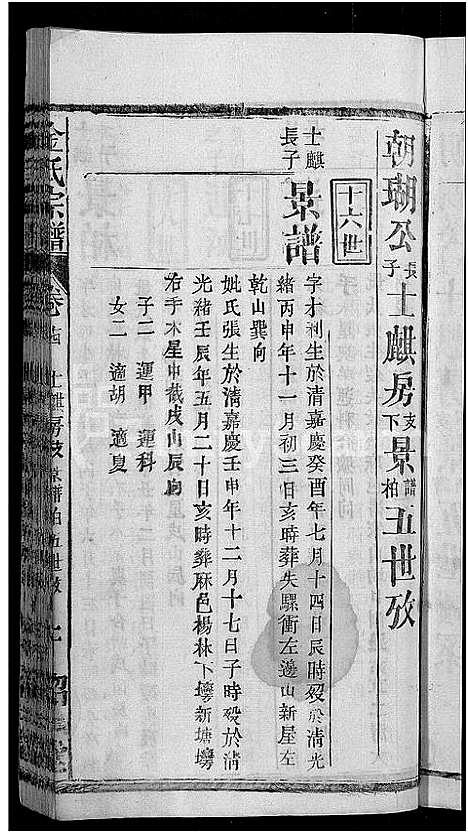 朝瑚公長子士麒房支下景譜柏五世攷
十六世
士麒長子
景譜
字才利生於清嘉慶癸酉年七月十四日辰時殁於清光
緒丙申年十一月初三日亥時葬失騾衝左邊山新屋左
乾山巽向
妣氏張生於清嘉慶壬申年十二月十七日子時殁於清
光緒壬辰年五月二十日亥時葬麻邑楊林下塆新塘塆
右手木星中截戌山辰向
子二 運甲 運科
女二 適胡 適夏
金氏宗譜 卷 士麒房支景譜柏五世攷